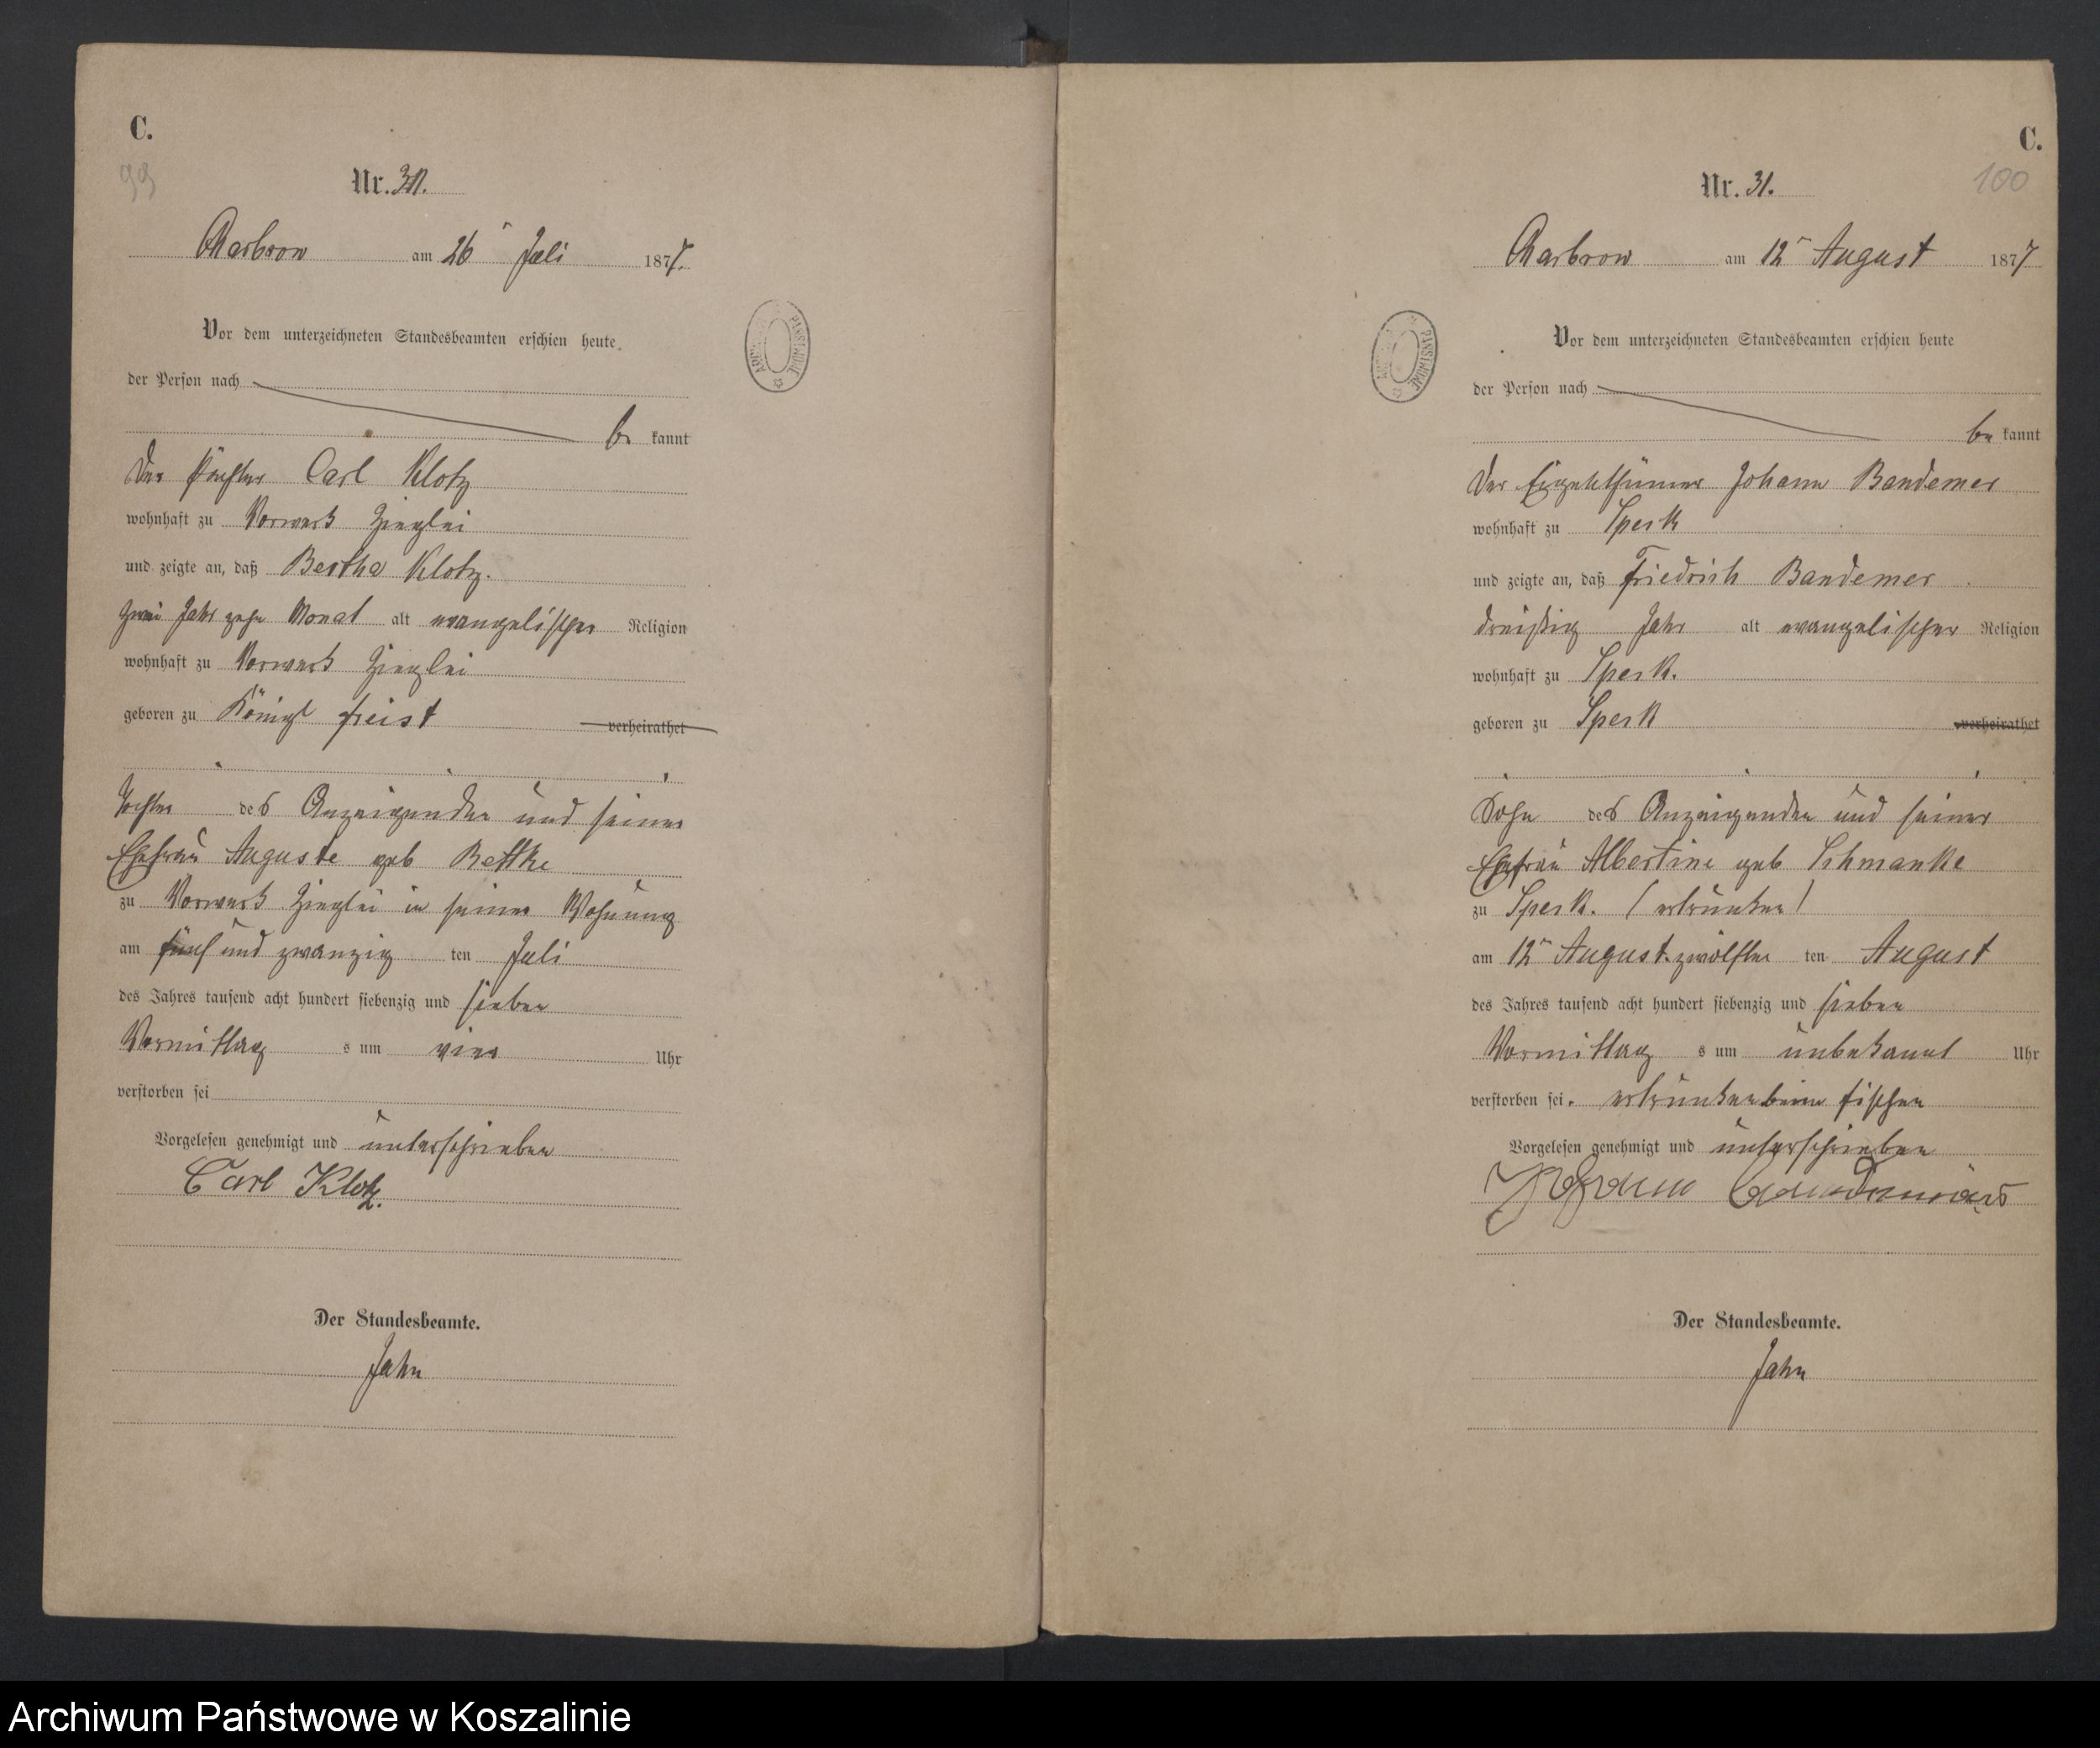 C.
99
Nr. 30.
Charbrow am 26 Juli 1877.
Vor dem unterzeichneten Standesbeamten erschien heute
der Person nach
be kannt
Der Pächter Carl Klotz
wohnhaft zu Vorwerk Zieglei
und zeigte an, daß Bertha Klotz.
zwei Jahr zehn Monat alt evangelischer Religion
wohnhaft zu Vorwerk Zieglei
geboren zu Königl Freist verheirathet
Tochter des Anzeigenden und seiner
Ehefrau Auguste geb Bettke
zu Vorwerk Zieglei in seiner Wohnung
am fünf und zwanzig ten Juli
des Jahres tausend acht hundert siebenzig und sieben
Vormittag s um vier Uhr
verstorben sei
Vorgelesen genehmigt und unterschrieben
Carl Klotz.
Der Standesbeamte.
Jahn
C.
100
Nr. 31.
Charbrow am 12 August 1877
Vor dem unterzeichneten Standesbeamten erschien heute
der Person nach
be kannt
Der Eigenthümer Johann Bandemer
wohnhaft zu Speck
und zeigte an, daß Friedrich Bandemer
dreißig Jahr alt evangelischer Religion
wohnhaft zu Speck.
geboren zu Speck verheirathet
Sohn des Anzeigenden und seiner
Ehefrau Albertine geb Schmanke
zu Speck. (ertrunken)
am 12 August zwölften ten August
des Jahres tausend acht hundert siebenzig und sieben
Vormittag s um unbekannt Uhr
verstorben sei. ertrunken beim fischen
Vorgelesen genehmigt und unterschrieben
Johann
Der Standesbeamte.
Jahn
Archiwum Państwowe w Koszalinie